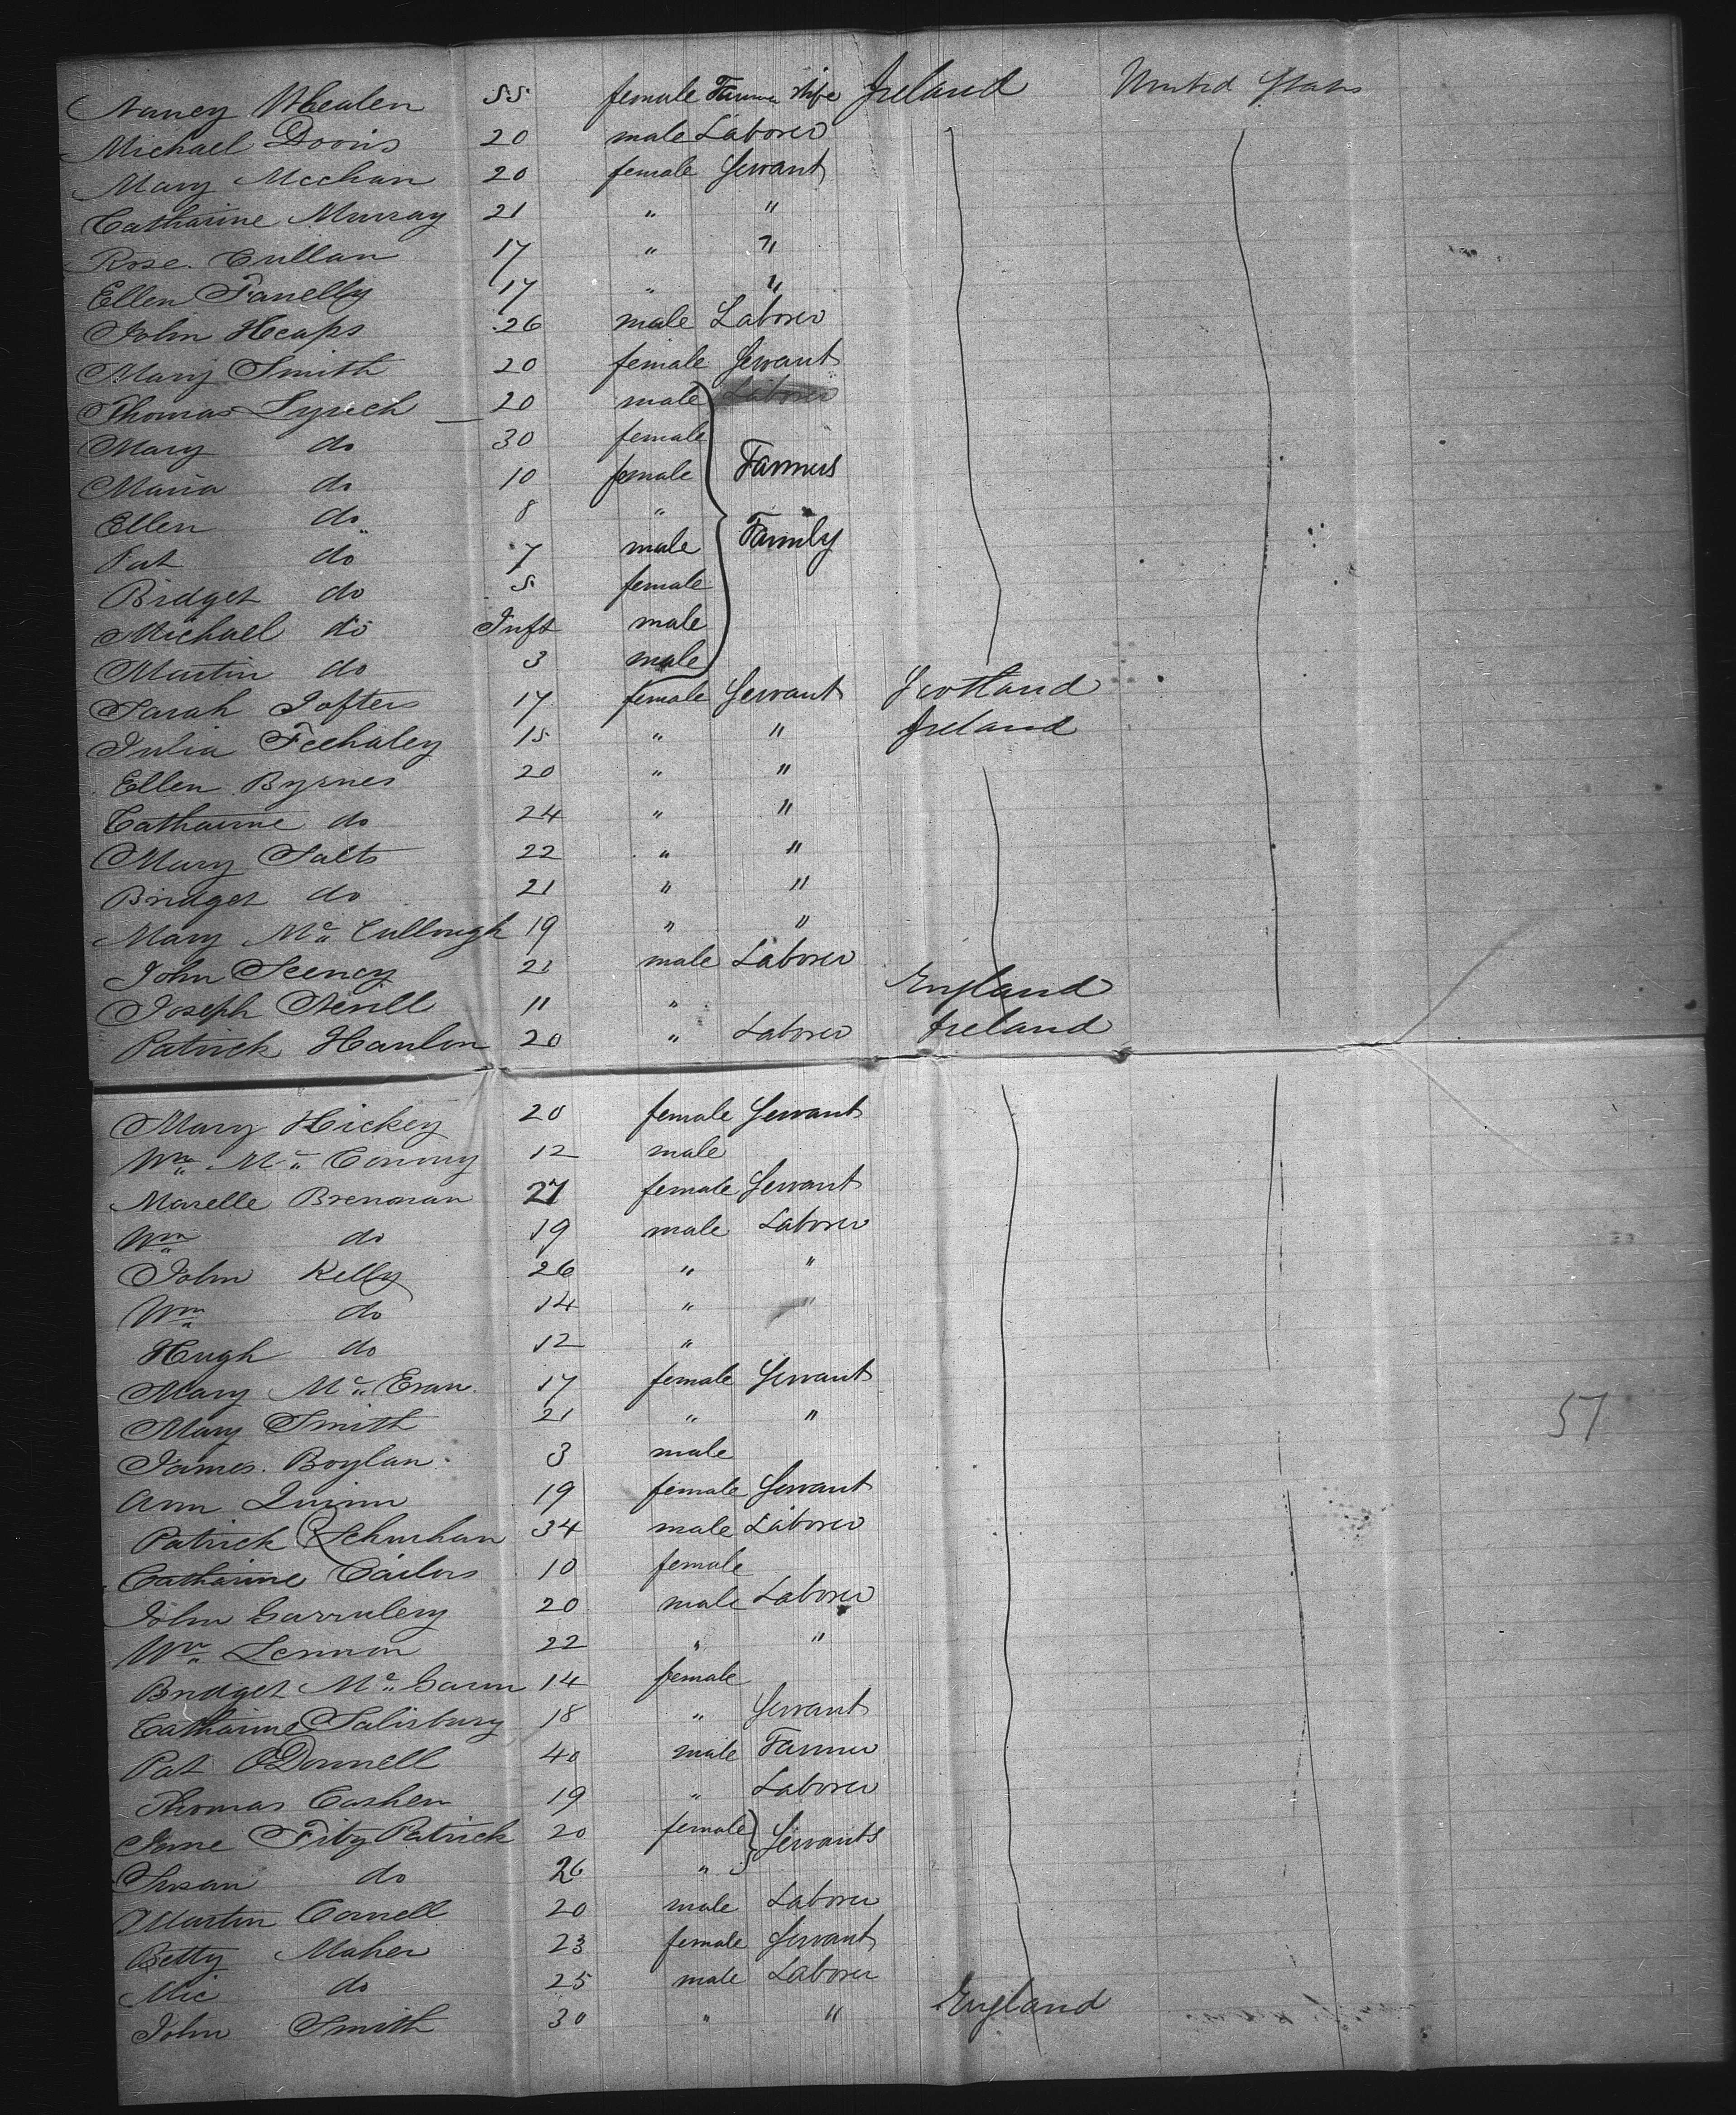 Nancy Whealen 55 female Farmer Wife Ireland United States
Michael Dooris 20 male Laborer
Mary Mechan 20 female Servant
Catharine Murray 21 " "
Rose Cullan 17 " "
Ellen Fanelly 17 " "
John Heaps 26 male Laborer
Mary Smith 20 female Servant
Thomas Lynch 20 male Laborer
Mary do 30 female
Maria do 10 female Farmers
Ellen do 8 "
Pat do 7 male Family
Bridget do 5 female
Michael do Inft male
Martin do 3 male
Sarah Jofters 17 female Servant Scotland
Julia Feehaley 15 " " Ireland
Ellen Byrnes 20 " "
Catharine do 24 " "
Mary Salts 22 " "
Bridget do 21 " "
Mary Mc Cullough 19 " "
John Seency 21 male Laborer
Joseph Nevill 11 " England
Patrick Hanlon 20 " Laborer Ireland
Mary Hickey 20 female Servant
Wm Mc Conomy 12 male
Marelle Brennan 27 female Servant
Wm do 19 male Laborer
John Kelly 26 " "
Wm do 14 " "
Hugh do 12 "
Mary Mc Evan 17 female Servant
Mary Smith 21 " "
James Boylan 3 male
Ann Quinn 19 female Servant
Patrick 34 male Laborer
Catharine Cailors 10 female
John 20 male Laborer
Wm Lennon 22 " "
Bridget Mc Garm 14 female
Catharine Salisbury 18 " Servant
Pat O'Donnell 40 male Farmer
Thomas Cashen 19 " Laborer
Jane FitzPatrick 20 female Servants
Susan do 26 "
Martin Connell 20 male Laborer
Betty Maher 23 female Servant
Mic do 25 male Laborer
John Smith 30 " " England
57